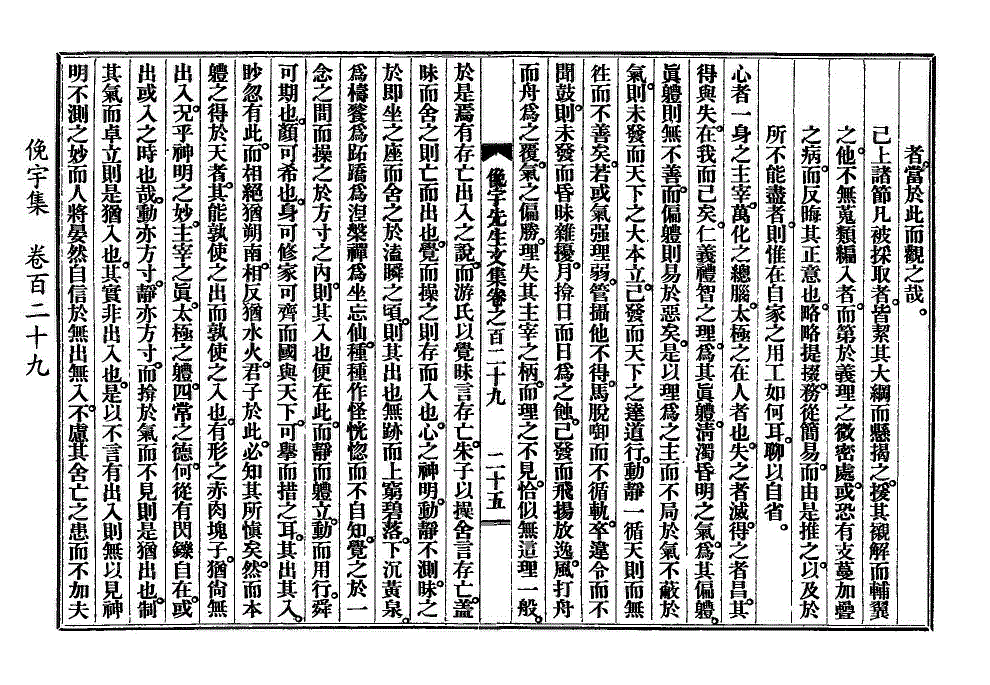 者當於此而觀之哉。
已上諸節凡被採取者皆絜其大綱而懸揭之援其襯解而輔翼
之他不無蒐類編入者而第於義理之微密處或恐有支蔓加疊
之病而反晦其正意也略略提掇務從簡易而由是推之以及於
所不能盡者則惟在自家之用工如何耳聊以自省。
心者一身之主宰萬化之總腦太極之在人者也失之者滅得之者昌其
得與失在我而已矣仁義禮智之理爲其眞軆淸濁昏明之氣爲其偏軆
眞軆則無不善而偏軆則易於惡矣是以理爲之主而不局於氣不蔽於
氣則未發而天下之大本立已發而天下之達道行動靜一循天則而無
徃而不善矣若或氣强理弱管攝他不得馬脫啣而不循軌卒違令而不
聞鼓則未發而昏昧雜擾月揜日而日爲之蝕已發而飛揚放逸風打舟
而舟爲之覆氣之偏勝理失其主宰之柄而理之不見恰似無這理一般
俛宇先生文集卷之百二十九 二十五
於是焉有存亡出入之說而游氏以覺昧言存亡朱子以操舍言存亡蓋
昧而舍之則亡而出也覺而操之則存而入也心之神明動靜不測昧之
於即坐之座而舍之於溘瞬之頃則其出也無跡而上窮碧落下沉黃泉
爲檮饕爲跖蹻爲涅槃禪爲坐忘仙種種作怪恍惚而不自知覺之於一
念之間而操之於方寸之內則其入也便在此而靜而軆立動而用行舜
可期也顔可希也身可修家可齊而國與天下可擧而措之耳其出其入
眇忽有此而相絕猶朔南相反猶水火君子於此必知其所愼矣然而本
軆之得於天者其能孰使之出而孰使之入也有形之赤肉塊子猶尙無
出入况乎神明之妙主宰之眞太極之軆四常之德何從有閃鑠自在或
出或入之時也哉動亦方寸靜亦方寸而揜於氣而不見則是猶出也制
其氣而卓立則是猶入也其實非出入也是以不言有出入則無以見神
明不測之妙而人將晏然自信於無出無入不慮其舍亡之患而不加夫
俛宇集 卷百二十九